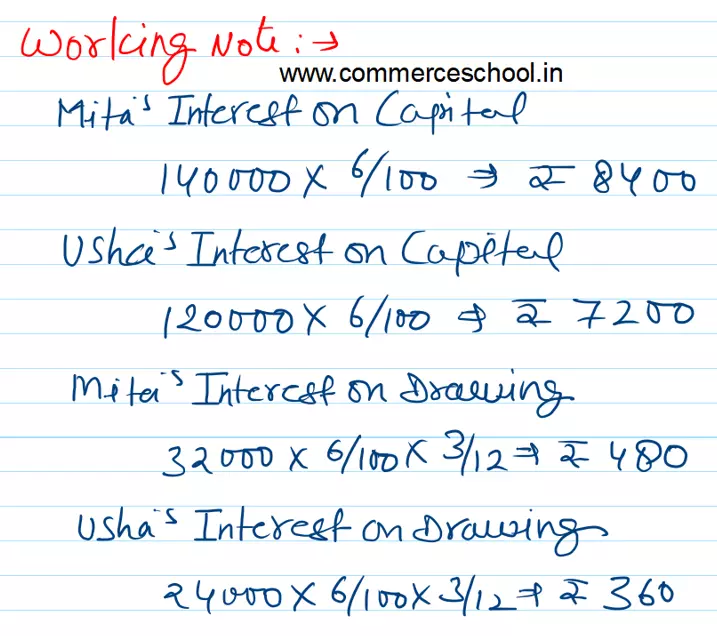 Working Note :→
www.commerceschool.in
Mita's Interest on Capital
140000 × 6/100 ⇒ ₹ 8400
Usha's Interest on Capital
120000 × 6/100 ⇒ ₹ 7200
Mita's Interest on Drawing
32000 × 6/100 × 3/12 ⇒ ₹ 480
Usha's Interest on Drawings
24000 × 6/100 × 3/12 ⇒ ₹ 360